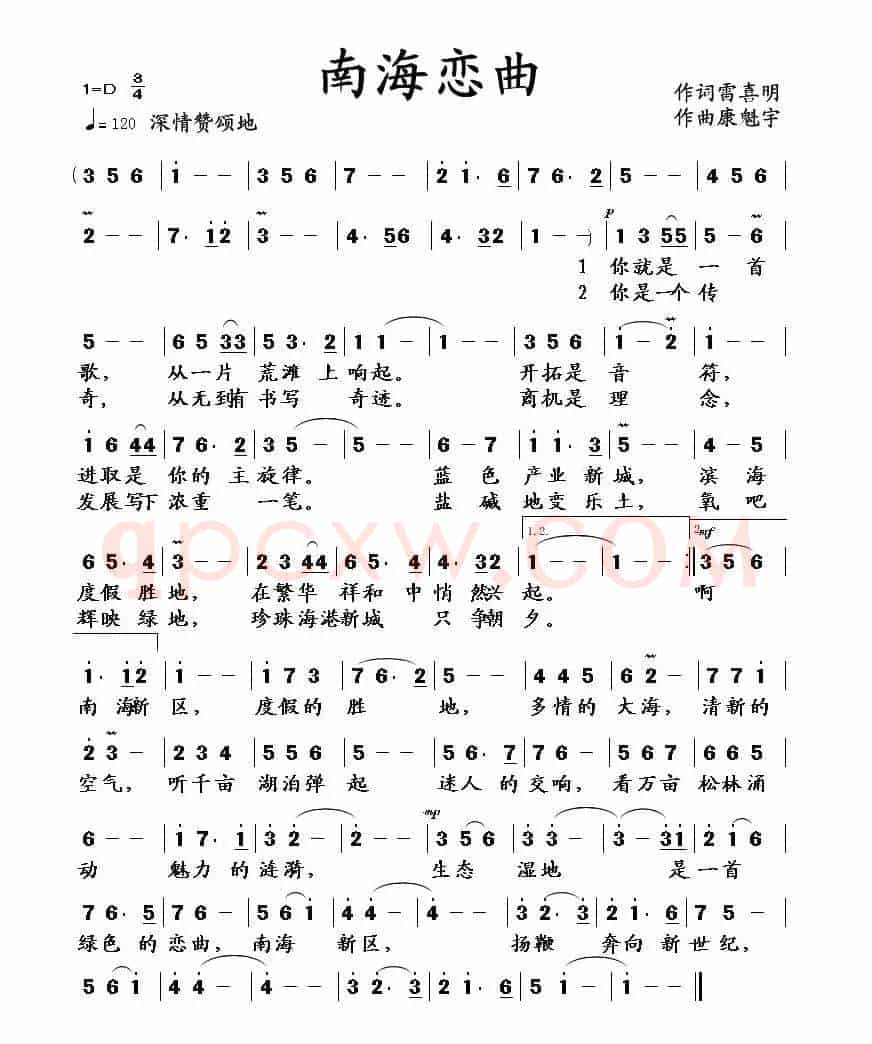 南海恋曲
1=D 3/4
♩=120 深情赞颂地
作词雷喜明
作曲康魁宇
(3 5 6 | 1 - - | 3 5 6 | 7 - - | 2 1· 6 | 7 6· 2 | 5 - - | 4 5 6 |
2 - - | 7· 1 2 | 3 - - | 4· 5 6 | 4· 3 2 | 1 - - ) | 1 3 5 5 | 5 - 6 |
p
1 你就是 一 首
2 你是一个 传
5 - - | 6 5 3 3 | 5 3· 2 | 1 1 - | 1 - - | 3 5 6 | 1 - 2 | 1 - - |
歌, 从一片 荒滩 上 响起。 开拓是 音 符,
奇, 从无到有 书写 奇迹。 商机是 理 念,
1 6 4 4 | 7 6· 2 | 3 5 - | 5 - - | 6 - 7 | 1 1· 3 | 5 - - | 4 - 5 |
进取是 你的 主 旋律。 蓝 色 产业 新城, 滨 海
发展写下 浓重 一笔。 盐 碱 地变 乐土, 氧 吧
qpcxw.com
1. 2.
2. mf
6 5· 4 | 3 - - | 2 3 4 4 | 5 6· 5 | 4· 3 2 | 1 - - | 1 - - :| 3 5 6 |
度假 胜 地, 在繁华 祥和 中 悄然兴 起。 啊
辉映 绿 地, 珍珠海港新城 只 争朝 夕。
1· 1 2 | 3 - - | 1 7 3 | 7 6· 2 | 5 - - | 4 4 5 | 6 2 - | 7 7 1 |
南 海新 区, 度假的 胜 地, 多情的 大海, 清新的
2 3 - | 2 3 4 | 5 5 6 | 5 - - | 5 6· 7 | 7 6 - | 5 6 7 | 6 6 7 |
空气, 听千亩 湖泊弹 起 迷人 的 交响, 看万亩 松林涌
mp
6 - - | 1 7· 1 | 3 2 - | 2 - - | 3 5 6 | 3 - 3 | 3 - 3 1 | 2 1 6 |
动 魅力 的 涟漪, 生态 湿地 是一首
7 6· 5 | 7 5 - | 5 6 1 | 4 4 - | 4 - - | 3 2· 3 | 2 1· 6 | 7 5 - |
绿色 的 恋曲, 南海 新区, 扬鞭 奔向 新 世纪,
5 6 1 | 4 4 - | 4 - - | 3 2· 3 | 2 1· 6 | 1 - - | 1 - - ‖